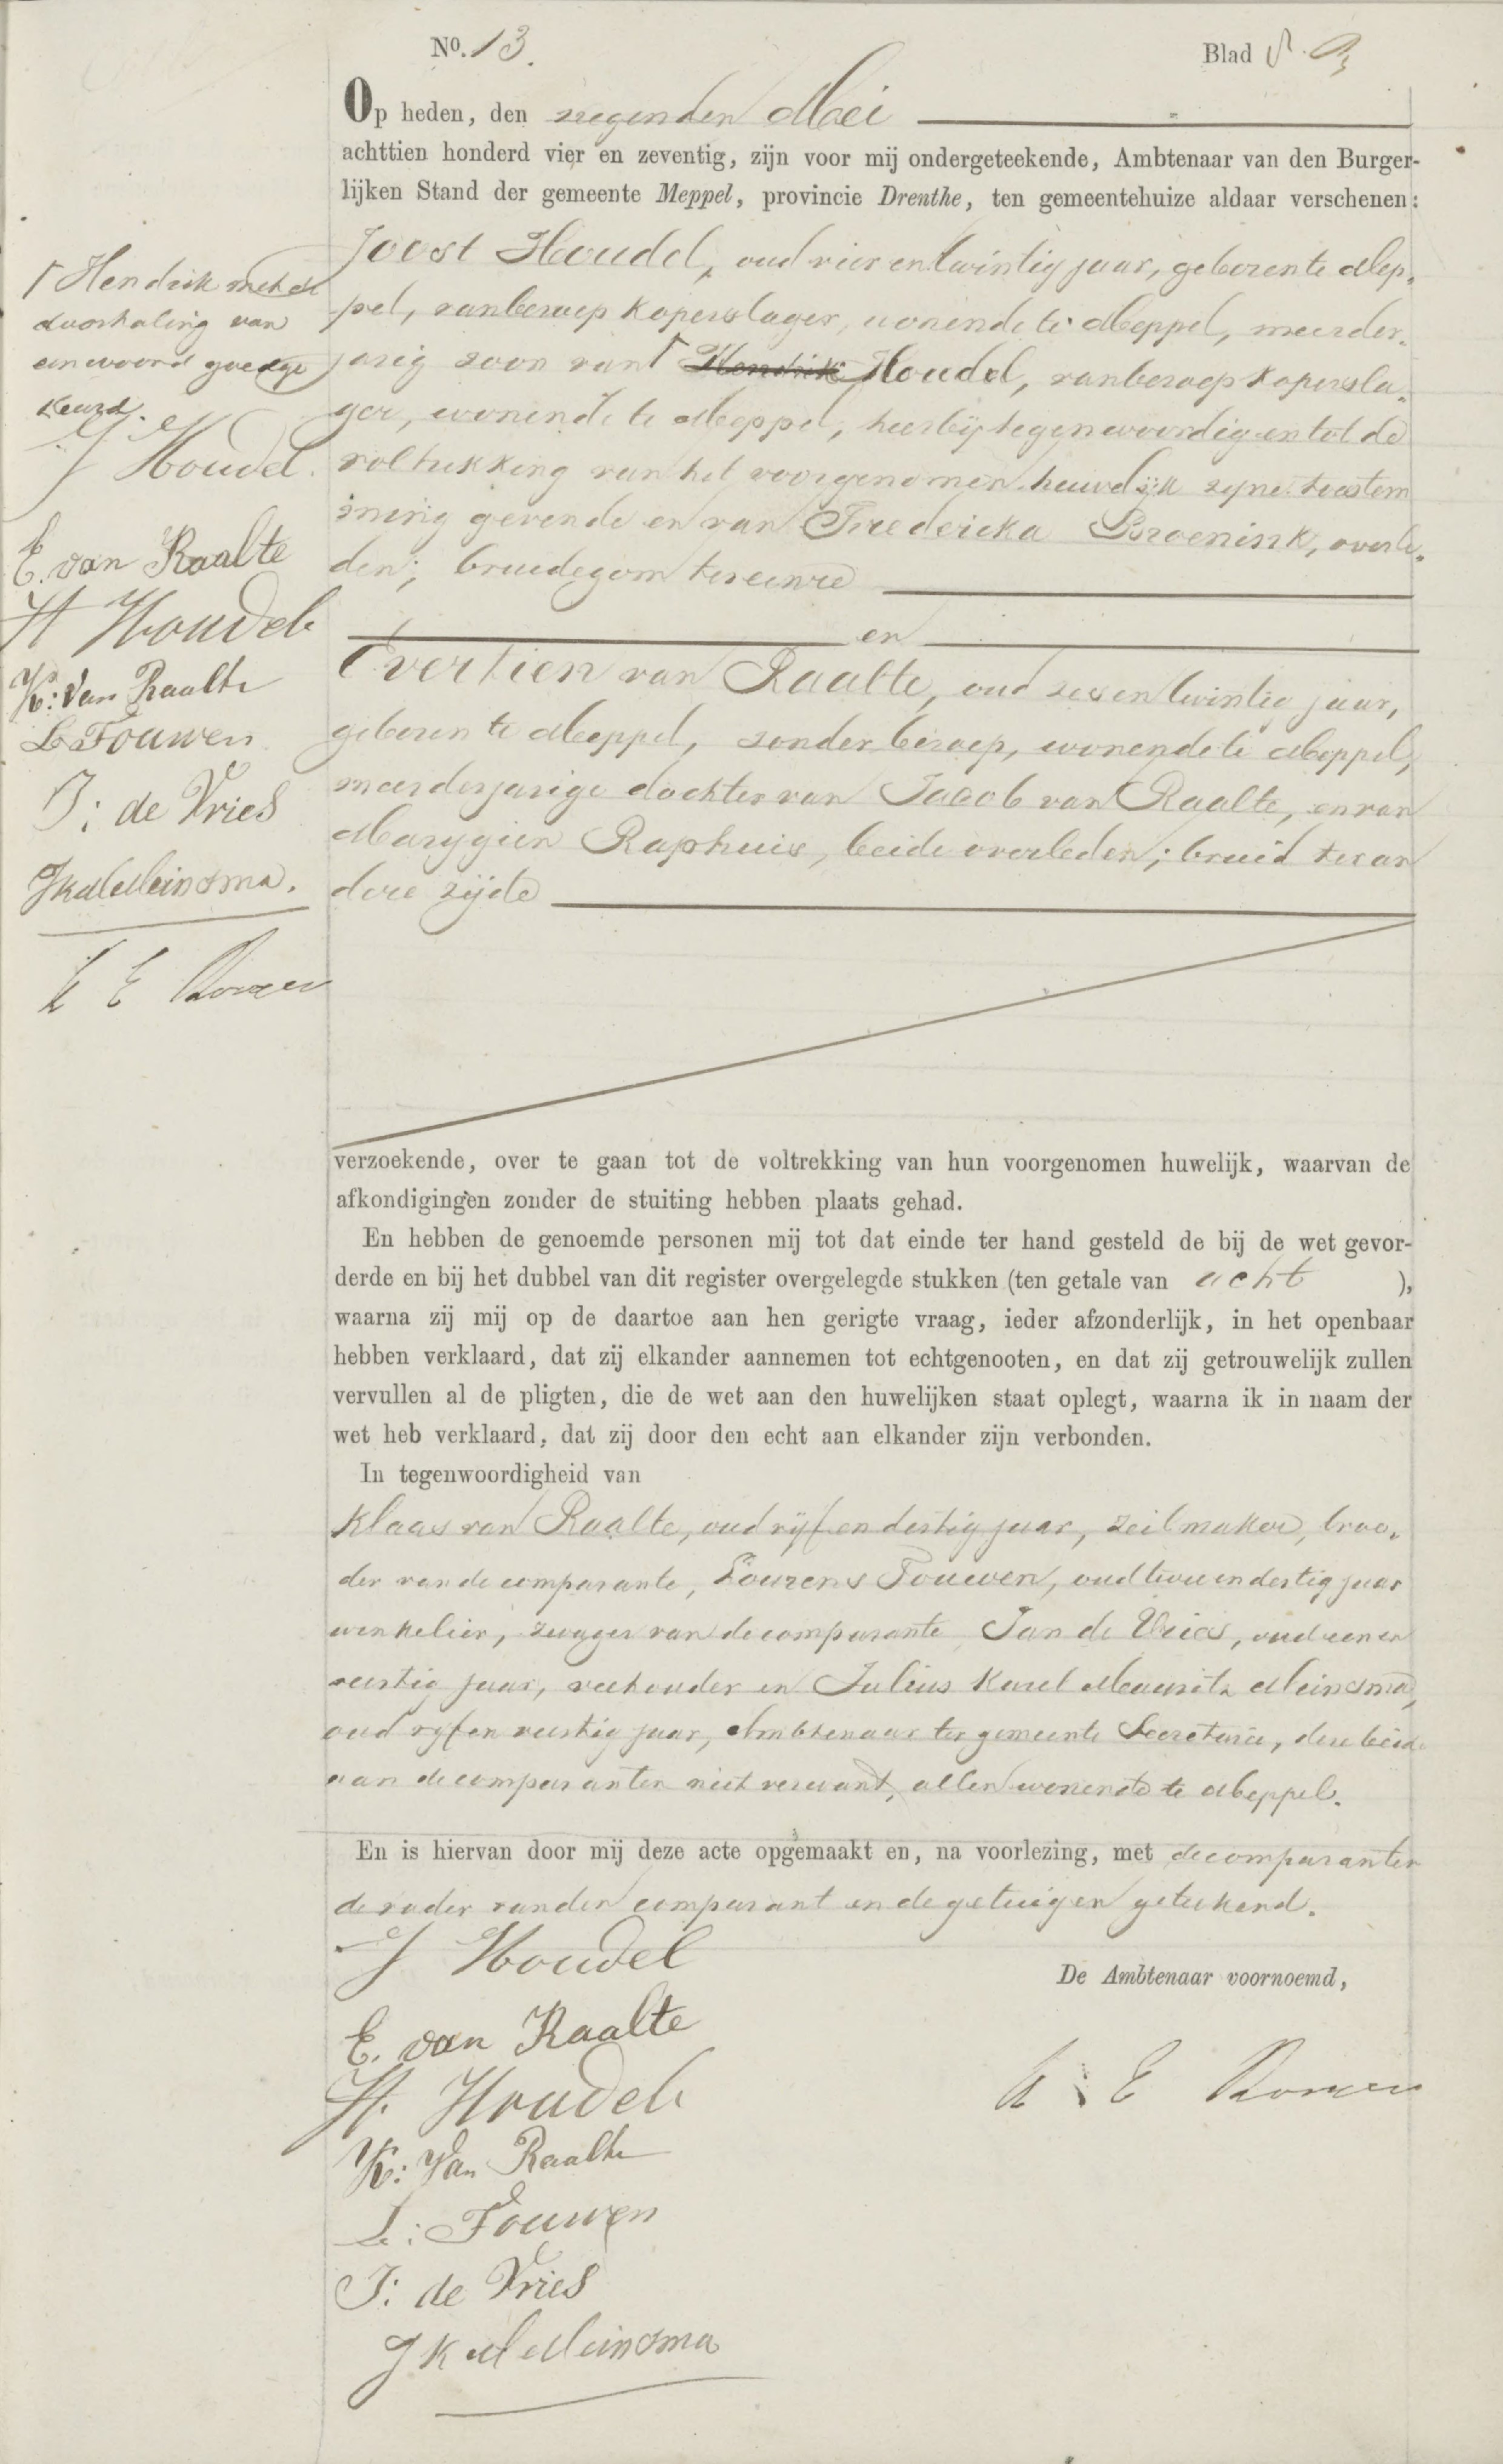 No. 13.
Blad
Op heden, den negenden Mei
achttien honderd vier en zeventig, zijn voor mij ondergeteekende, Ambtenaar van den Burger-
lijken Stand der gemeente Meppel, provincie Drenthe, ten gemeentehuize aldaar verschenen:
Joost Houdel, oud vier en twintig jaar, geboren te Mep-
pel, van beroep koperslager, wonende te Meppel, meerder-
jarig zoon van ⌈ Hendrik Houdel, van beroep kopersla-
ger, wonende te Meppel, hierbij tegenwoordig en tot de
voltrekking van het voorgenomen huwelijk zijne toestem
ming gevende en van Frederika Broenink, overle-
den; bruidegom ter eenre
en
Evertien van Raalte, oud zes en twintig jaar,
geboren te Meppel, zonder beroep, wonende te Meppel,
meerderjarige dochter van Jacob van Raalte, en van
Marygien Raphuis, beide overleden; bruid ter an
dere zijde
⌈ Hendrik met de
doorhaling van
een woord goedge
keurd.
J Houdel.
E. van Raalte
H Houdel
K: van Raalte
L Touwen
J: de Vries
JKMMeinsma.
verzoekende, over te gaan tot de voltrekking van hun voorgenomen huwelijk, waarvan de
afkondigingen zonder de stuiting hebben plaats gehad.
En hebben de genoemde personen mij tot dat einde ter hand gesteld de bij de wet gevor-
derde en bij het dubbel van dit register overgelegde stukken (ten getale van acht ),
waarna zij mij op de daartoe aan hen gerigte vraag, ieder afzonderlijk, in het openbaar
hebben verklaard, dat zij elkander aannemen tot echtgenooten, en dat zij getrouwelijk zullen
vervullen al de pligten, die de wet aan den huwelijken staat oplegt, waarna ik in naam der
wet heb verklaard, dat zij door den echt aan elkander zijn verbonden.
In tegenwoordigheid van
Klaas van Raalte, oud vijf en dertig jaar, zeilmaker, broe-
der van de comparante, Lourens Touwen, oud twee en dertig jaar
winkelier, zwager van de comparante Jan de Vries, oud een en
veertig jaar, veehouder en Julius Karel Maurits Meinsma,
oud vijf en veertig jaar, Ambtenaar ter gemeente Secretarie, deze beide
aan de comparanten niet verwant, allen wonende te Meppel.
En is hiervan door mij deze acte opgemaakt en, na voorlezing, met de comparanten
de vader van den comparant en de getuigen geteekend.
J Houdel
De Ambtenaar voornoemd,
E. van Raalte
H. Houdel
K: Van Raalte
L: Touwen
J: de Vries
JKMMeinsma